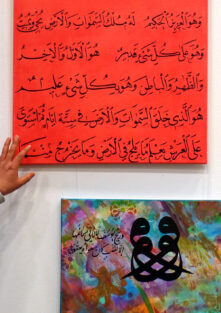 وهو العزيز الحكيم له ملك السموات والأرض يحيي ويميت
وهو على كل شيء قدير هو الأول والآخر
والظهر والباطن وهو بكل شيء عليم
هو الذي خلق السموات والأرض في ستة أيام ثم استوى
على العرش يعلم ما يلج في الأرض وما يخرج منها